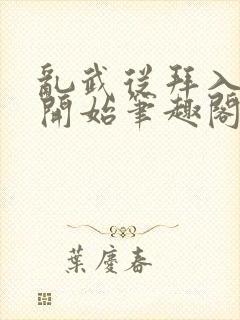 亂武從拜入
開始筆趣閣
葉慶春